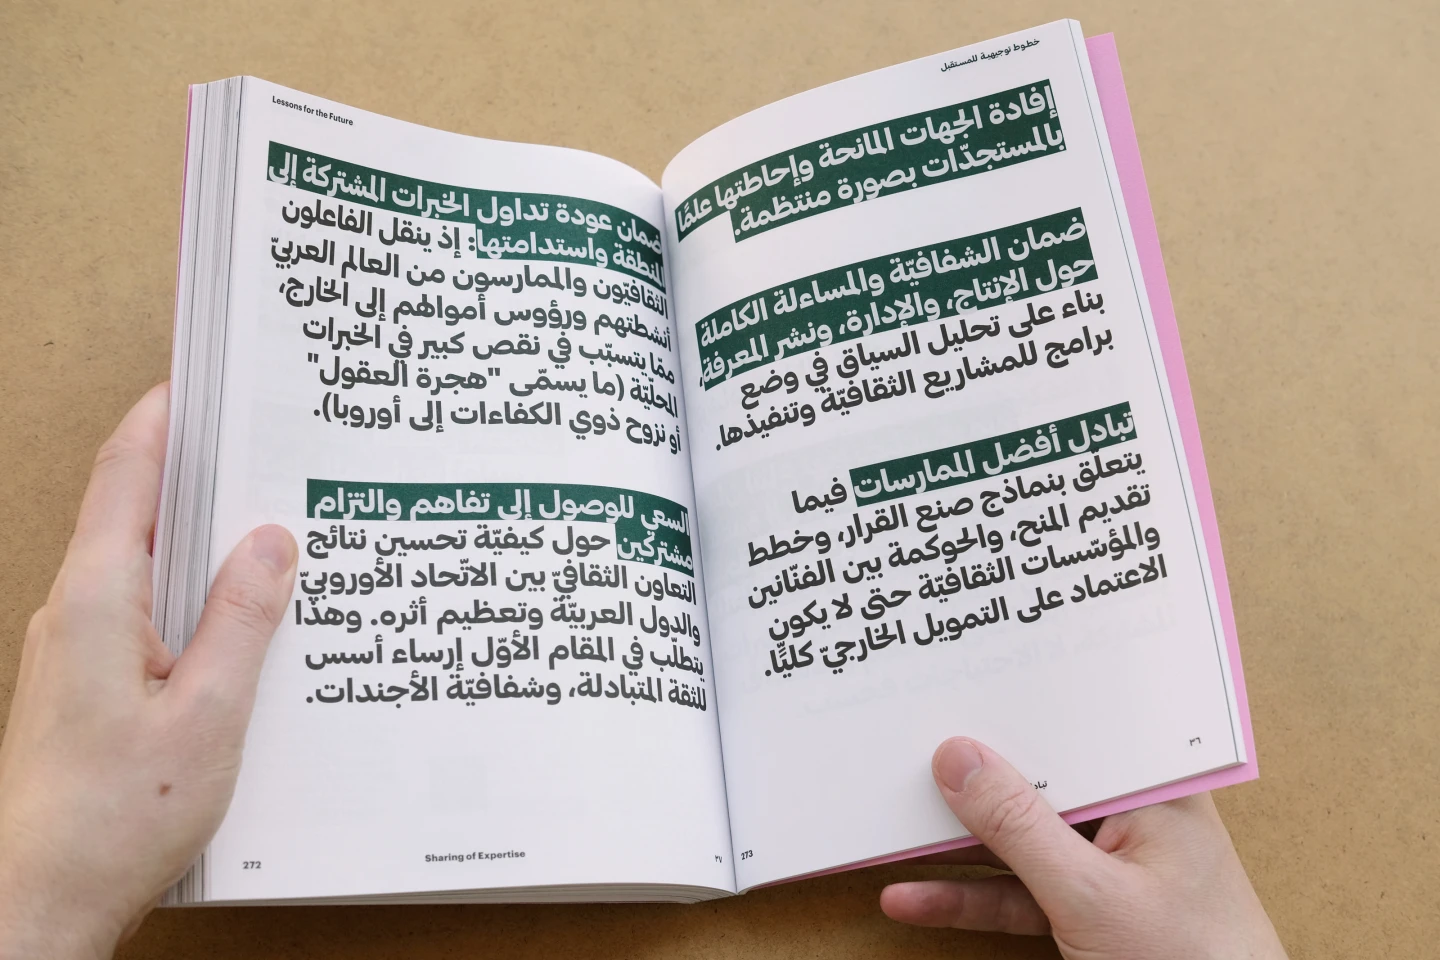 خطوط توجيهية للمستقبل
إفادة الجهات المانحة وإحاطتها علمًا
بالمستجدّات بصورة منتظمة.
ضمان الشفافيّة والمساءلة الكاملة
حول الإنتاج، والإدارة، ونشر المعرفة،
بناء على تحليل السياق في وضع
برامج للمشاريع الثقافيّة وتنفيذها.
تبادل أفضل الممارسات فيما
يتعلّق بنماذج صنع القرار، وخطط
تقديم المنح، والحوكمة بين الفنّانين
والمؤسّسات الثقافيّة حتى لا يكون
الاعتماد على التمويل الخارجيّ كليًّا.
٣٦
273
Lessons for the Future
ضمان عودة تداول الخبرات المشتركة إلى
المنطقة واستدامتها: إذ ينقل الفاعلون
الثقافيّون والممارسون من العالم العربيّ
أنشطتهم ورؤوس أموالهم إلى الخارج،
ممّا يتسبّب في نقص كبير في الخبرات
المحليّة (ما يسمّى "هجرة العقول"
أو نزوح ذوي الكفاءات إلى أوروبا).
السعي للوصول إلى تفاهم والتزام
مشتركين حول كيفيّة تحسين نتائج
التعاون الثقافيّ بين الاتّحاد الأوروبيّ
والدول العربيّة وتعظيم أثره. وهذا
يتطلّب في المقام الأوّل إرساء أسس
للثقة المتبادلة، وشفافيّة الأجندات.
272
Sharing of Expertise
٣٧